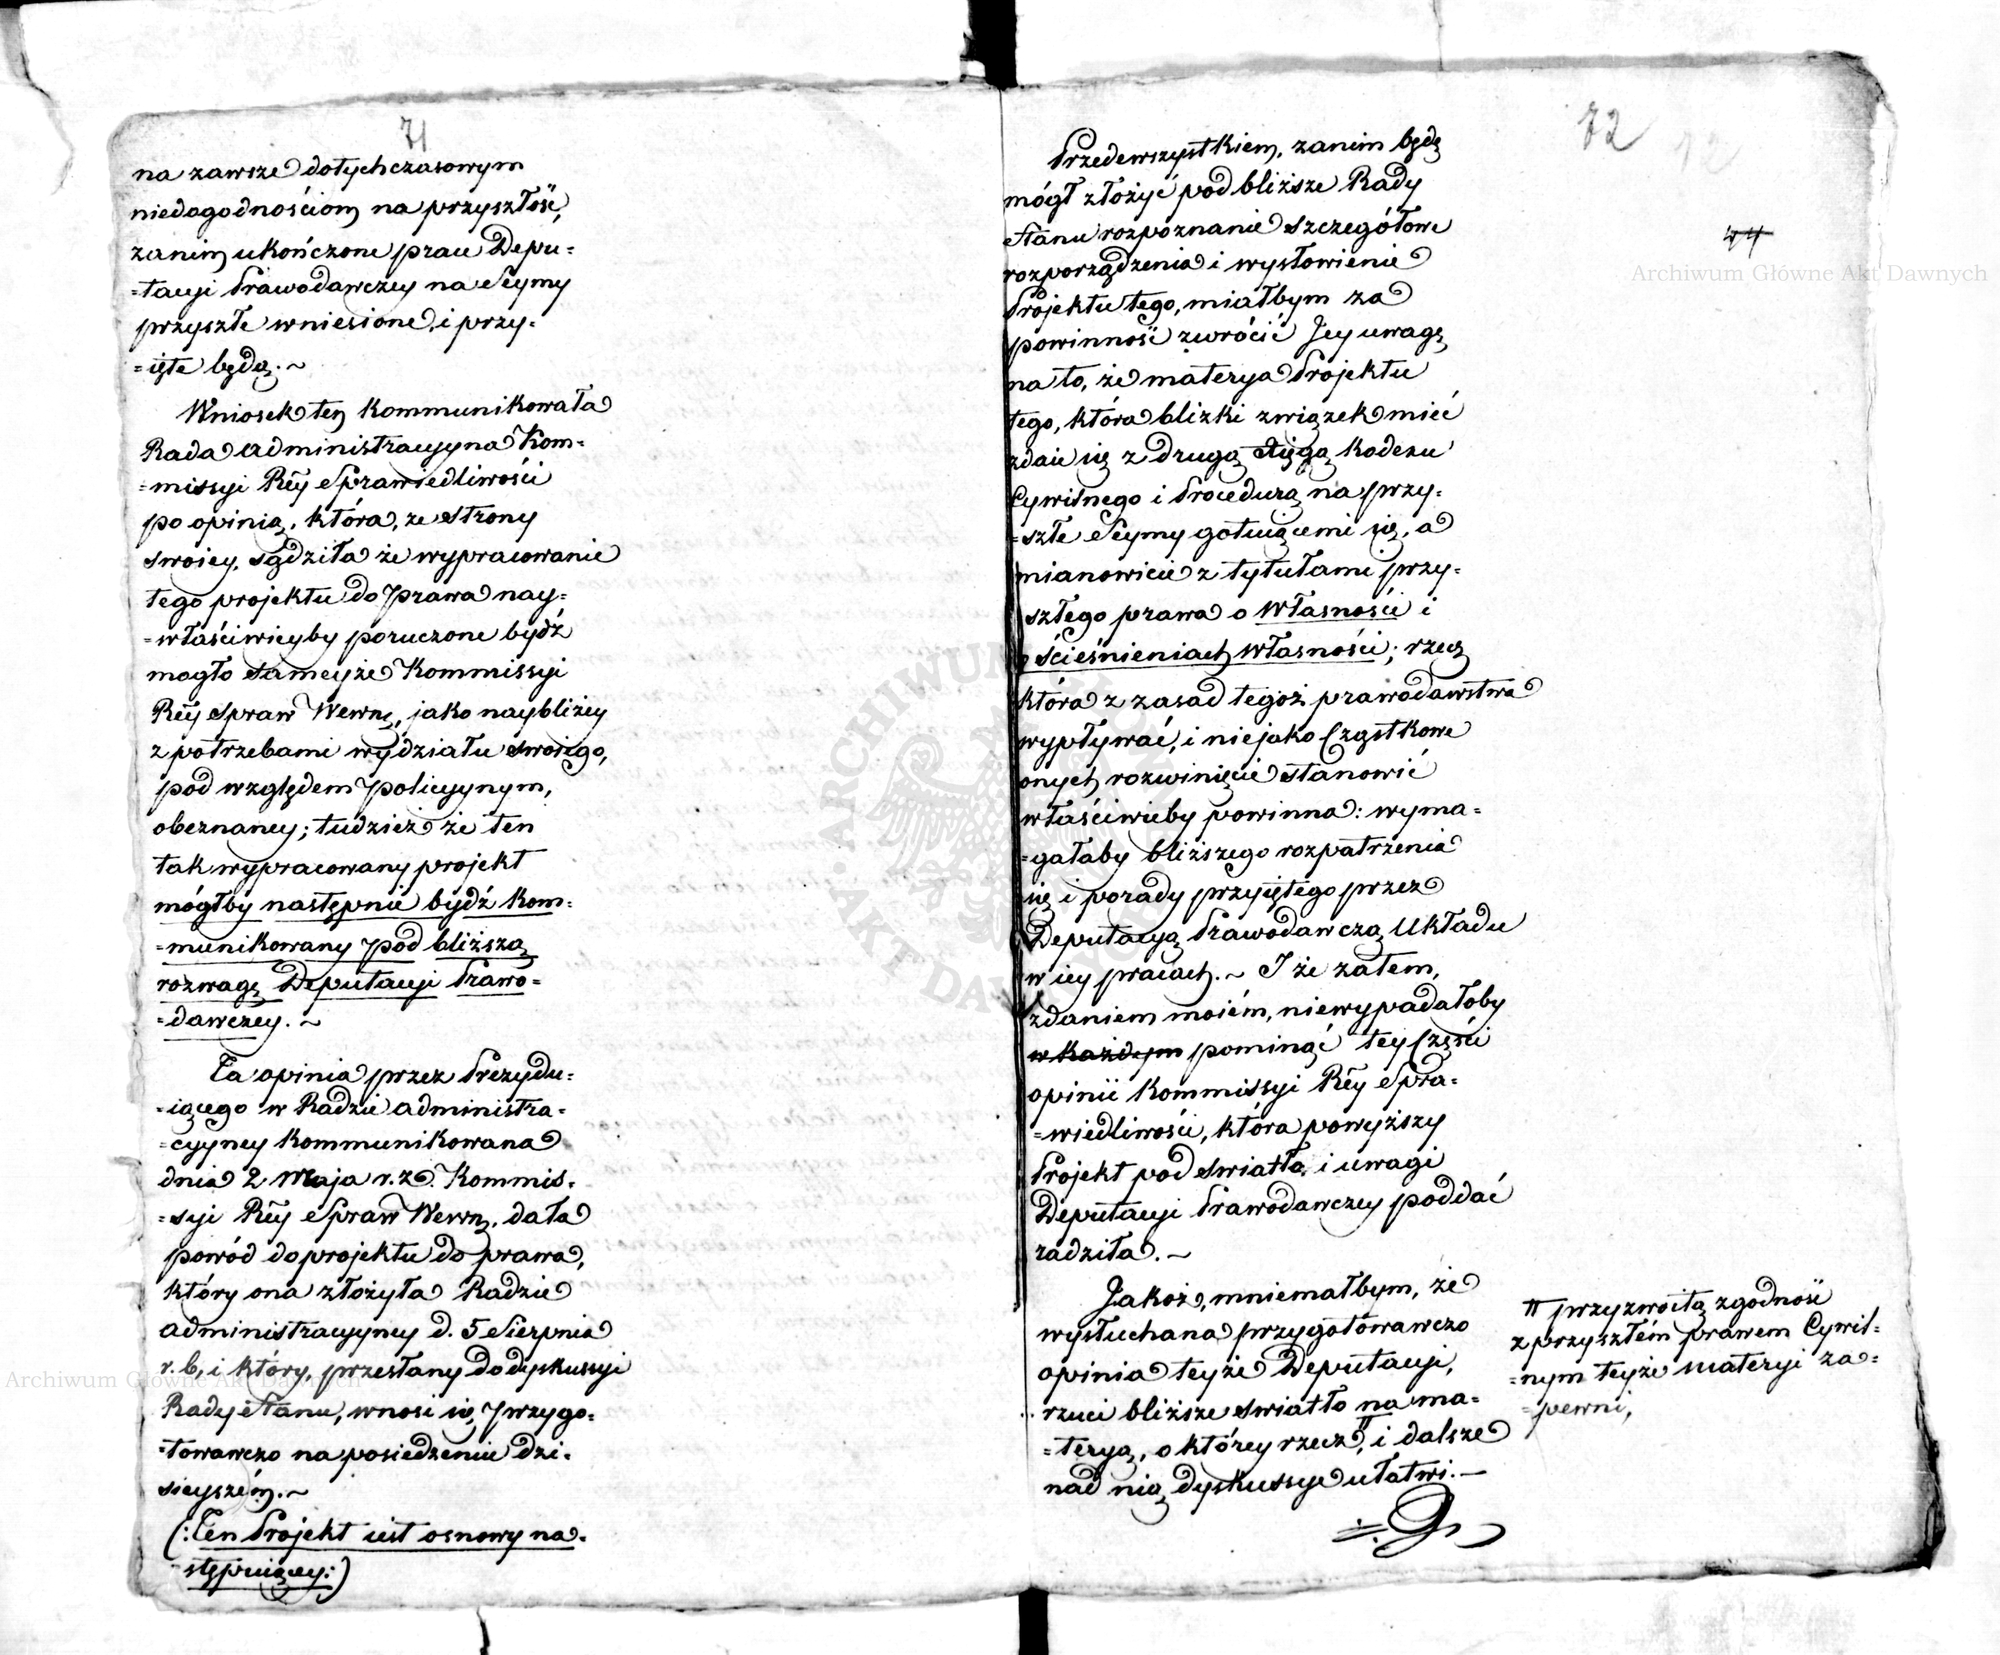 71
na zawsze dotychczasowym
niedogodnościom na przyszłość,
zanim ukończone prace Depu=
=tacyi Prawodawczey na Seymy
przyszłe wniesione, i przy=
=ięte będą. ~
Wniosek ten kommunikowała
Rada Administracyyna Kom=
=missyi Rẽy Sprawiedliwości
po opinią, która, ze strony
swoiey, sądziła że wypracowanie
tego projektu do prawa nay=
=właściwieyby poruczone bydź
mogło sameyże Kommissyi
Rẽy Spraw Wewn, jako naybliżey
z potrzebami wydziału swoiego,
pod względem policyynym,
obeznaney; tudzież że ten
tak wypracowany projekt
mógłby następnie bydź kom=
=munikowany pod bliższą
rozwagę Deputacyi Prawo=
=dawczey. ~
Ta opinia przez Prezydu=
=iącego w Radzie Administra=
=cyyney kommunikowana
dnia 2 Maja r. z. Kommis=
=syi Rẽy Spraw Wewn, dała
powód do projektu do prawa,
który ona złożyła Radzie
Administracyyney d. 5 Sierpnia
r. b, i który, przesłany do dyskussyi
Rady Stanu, wnosi się przygo=
=towawczo na posiedzenie dzi=
sieyszém. ~
(: Ten Projekt iest osnowy na=
stępuiącey: )
72
12
44
Przedewszystkiem, zanim będę
mógł złożyć pod bliższe Rady
Stanu rozpoznanie szczegółowe
rozporządzenia i wysłowienie
Projektu tego, miałbym za
powinność zwrócić Jey uwagę
na to, że materya Projektu
tego, która blizki związek mieć
zdaie się z drugą Xięgą Kodexu
Cywilnego i Procedurą na przy=
=szłe Seymy gotuiącemi się, a
mianowicie z tytułami przy=
szłego prawa o Własności i
o Ścieśnieniach Własności; rzecz
która z zasad tegoż prawodawstwa
wypływać, i niejako Cząstkowe
onych rozwinięcie stanowić
właściwieby powinna: wyma=
=gałaby bliższego rozpatrzenia
się i porady przyiętego przez
Deputacyą Prawodawczą Układu
w iey pracach. ~ I że zatem,
zdaniem moiém, niewypadałoby
w każdym pominąć tey Części
opinii Kommissyi Rẽy Spra=
=wiedliwości, która powyższy
Projekt pod światło i uwagi
Deputacyi Prawodawczey poddać
radziła. ~
Jakoż, mniemałbym, że
wysłuchana przygotowawczo
opinia teyże Deputacyi,
rzuci bliższe światło na ma=
=teryą, o którey rzecz, # i dalsze
nad nią dyskussye ułatwi. —
# przyzwoitą zgodność
z przyszłém prawem Cywil=
=nym teyże materyi za=
=pewni,
Archiwum Główne Akt Dawnych
Archiwum Główne Akt Dawnych
ARCHIWUM
AKT DAWNYCH